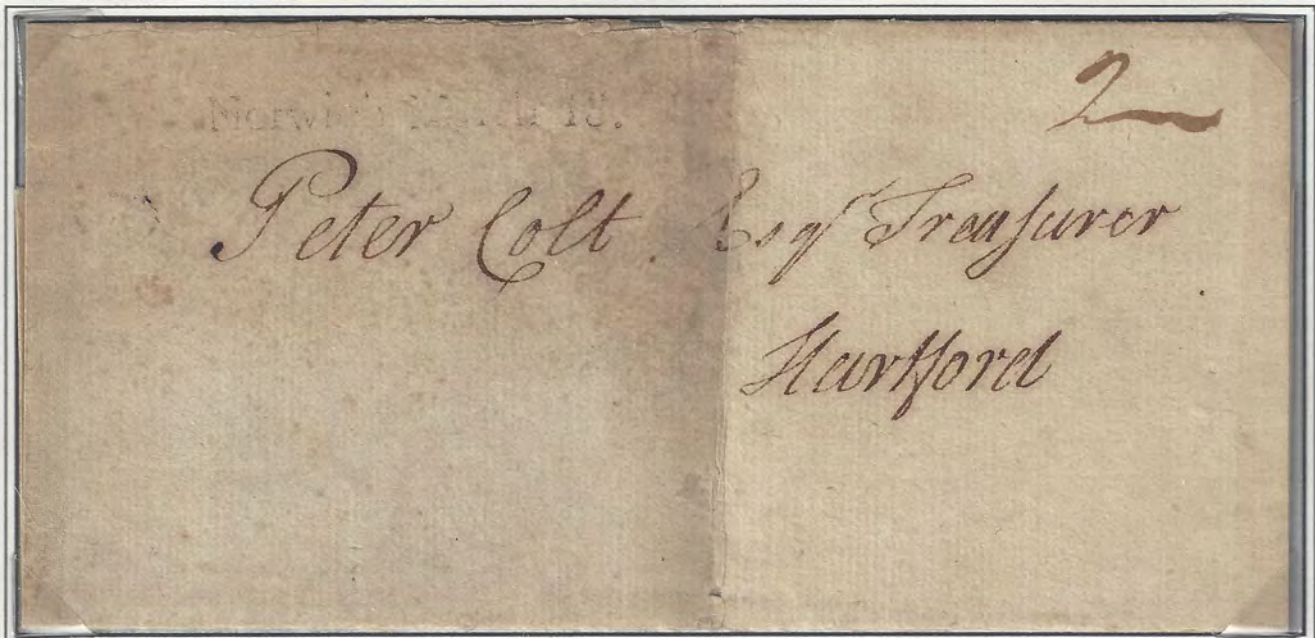 Norwich March 18.
2
Peter Colt Esqr Treasurer
Hartford